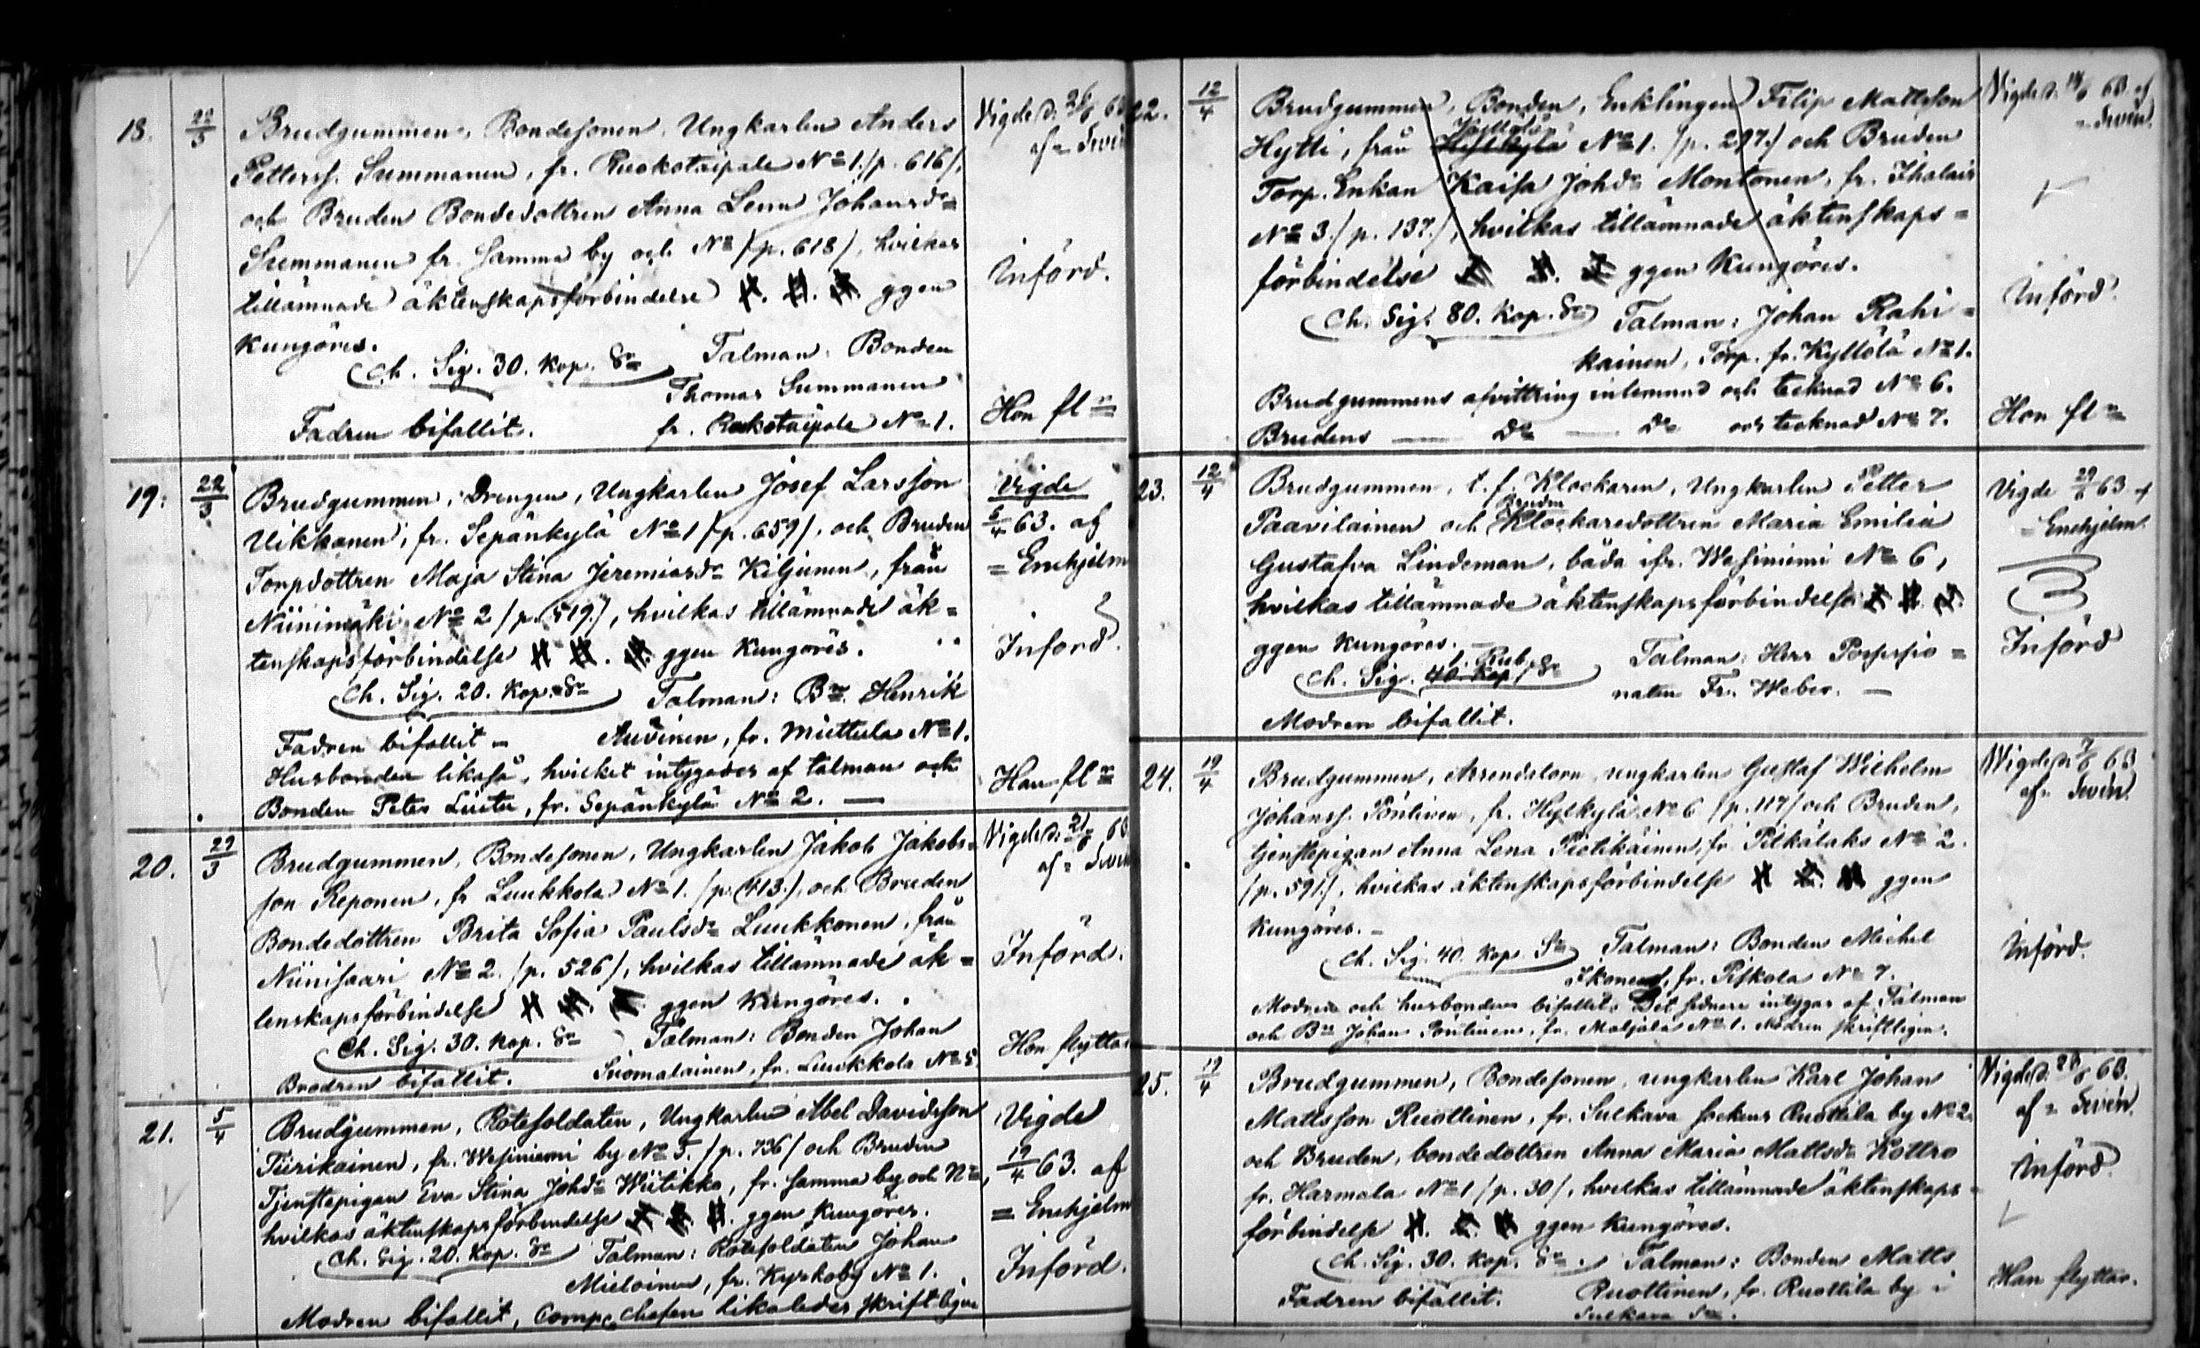 18. 22/3 Brudgummen, Bondesonen, Ungkarlen Anders
Petterss. Summanen, fr. Ruokotaipale No 1. /p. 616/,
och Bruden Bondedottren Anna Lena Johansdr
Summanen fr. samma by och No /p. 618/, hvilkas
tillämnade äktenskapsförbindelse I. II. III. ggen
kungöres.
Ch. Sig. 30. Kop. Sr Talman: Bonden
Thomas Summanen
Fadren bifallit. fr. Ruokotaipale No 1.
Vigde d. 26/6 63
af Swin
Införd.
Hon fl
19. 22/3 Brudgummen, Drengen, Ungkarlen Josef Larsson
Uikkanen, fr. Sepänkylä No 1 /p. 659/, och Bruden
Torpdottren Maja Stina Jeremiasdr Kiljunen, från
Niinimäki No 2 /p. 519./, hvilkas tillämnade äk=
tenskapsförbindelse I. II. III. ggen kungöres.
Ch. Sig. 20. Kop. Sr Talman: Bn Henrik
Fadren bifallit – Auvinen, fr. Miettula No 1.
Husbonden likaså, hvilket intygades af talman och
Bonden Peter Luitu, fr. Sepänkylä No 2. —
Vigde
6/4 63. af
= Enehjelm
Införd
Han fl
20. 29/3 Brudgummen, Bondesonen, Ungkarlen Jakob Jakobs=
son Reponen, fr Luukkola No 1. /p. 413./, och Bruden
Bondedottren Brita Sofia Paulsdr Luukkonen, från
Niinisaari No 2. /p. 526/, hvilkas tillämnade äk=
tenskapsförbindelse I. II. III. ggen kungöres.
Ch. Sig. 30. Kop. Sr Talman: Bonden Johan
Brodren bifallit. Suomalainen, fr. Luukkola No 5
Vigde d. 21/6 63
af = Swin
Införd.
Hon flyttar
21. 5/4 Brudgummen, Rotesoldaten, Ungkarlen Abel Davidsson
Tiirikainen, fr. Wesiniemi by No 5. /p. 736/ och Bruden
Tjenstepigan Eva Stina Johdr Wiitikka, fr. samma by och No,
hvilkas äktenskapsförbindelse I. II. III. ggen kungöres.
Ch. Sig. 20. Kop. Sr Talman: Rotesoldaten Johan
Mieloinen, fr. Kyrkoby No 1.
Modren bifallit, Comp. chefen likaledes skriftligen
Vigde
19/4 63. af
= Enehjelm
Införd.
22. 12/4 Brudgummen, Bonden, Enklingen Filip Mattsson
Kyllölä
Hytti, från Hyllkylä No 1. /p. 297./ och Bruden
Torp. Enkan Kaisa Johdr Montonen, fr. Ihalais
No 3. /p. 137./, hvilkas tillämnade äktenskaps=
förbindelse I. II. III. ggen kungöres.
Ch. Sig. 80. Kop. Sr Talman: Johan Rahi=
kainen, Torp. fr. Kyllölä No 1.
Brudgummens afvittring inlemnad och tecknad No 6.
Brudens — Do — Do och tecknad No 7.
Vigde d. 63 af
= Swin.
Införd.
Hon fl
23. 12/4 Brudgummen, t. f. Klockaren, Ungkarlen Petter
Bruden
Paavilainen och Klockaredottren Maria Emilia
Gustafva Lindeman, båda ifr. Wesiniemi No 6,
hvilkas tillämnade äktenskapsförbindelse I. II. III.
ggen kungöres.
1. Rub.
Ch. Sig. 40. Kop. Sr Talman: Herr Possessio=
naten Fr. Weber. —
Modren bifallit.
Vigde 29/6 63 af
= Enehjelm
Införd
24. 19/4 Brudgummen, Arrendatorn, ungkarlen Gustaf Wilhelm
Johanss. Pöntinen, fr. Hyllkylä No 6 /p. 117/ och Bruden,
tjenstepigan Anna Lena Pietikäinen, fr. Pitkälaks No 2.
/p. 591/, hvilkas äktenskapsförbindelse I. II. III. ggen
kungöres. –
Ch. Sig. 40. Kop. Sr Talman: Bonden Michel
Ikonen, fr. Piskola No 7.
Modren och husbonden bifallit. Det sednare intygar af Talman
och Bn Johan Pöntinen, fr. Maljala No 1. Modren skriftligen.
Vigde d. 7/6 63
af = Swin.
Införd.
25. 19/4 Brudgummen, Bondesonen, ungkarlen Karl Johan
Mattsson Ruottinen, fr. Sulkava sockens Ruottila by No 2
och Bruden, bondedottren Anna Maria Mattsdr Kottro
fr. Harmala No 1 /p. 30/, hvilkas tillämnade äktenskaps=
förbindelse I. II. III. ggen kungöres.
Ch. Sig. 30. Kop. Sr. Talman: Bonden Matts
Fadren bifallit. Ruottinen, fr. Ruottila by i
Sulkava Sn.
Vigde d. 63.
af = Swin.
Införd
Han flyttar.